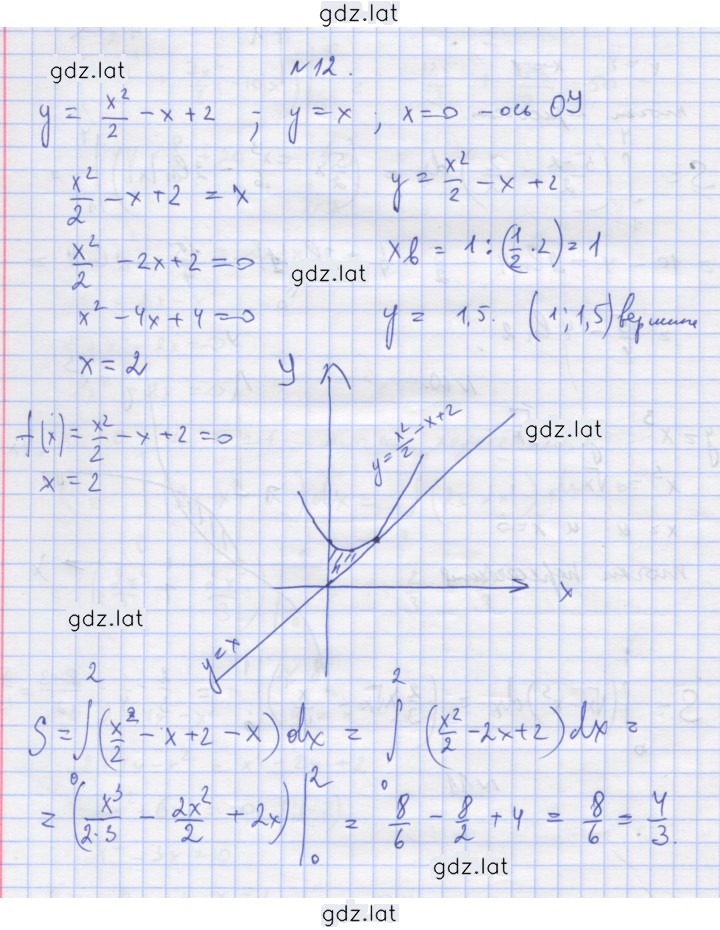 gdz.lat
gdz.lat
№12.
y = x²/2 - x + 2 ; y = x ; x = 0 - ось OY
x²/2 - x + 2 = x
y = x²/2 - x + 2
x²/2 - 2x + 2 = 0
xв = 1 : (1/2 · 2) = 1
gdz.lat
x² - 4x + 4 = 0
y = 1,5. (1; 1,5) вершина
x = 2
y
f(x) = x²/2 - x + 2 = 0
y = x²/2 - x + 2
gdz.lat
x = 2
x
gdz.lat
y = x
S = ∫₀² (x²/2 - x + 2 - x) dx = ∫₀² (x²/2 - 2x + 2) dx =
= (x³/2·3 - 2x²/2 + 2x) |₀² = 8/6 - 8/2 + 4 = 8/6 = 4/3.
gdz.lat
gdz.lat